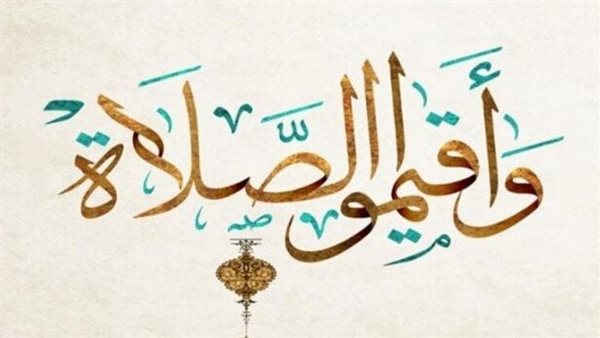 وَأَقيموا الصَّلاةَ